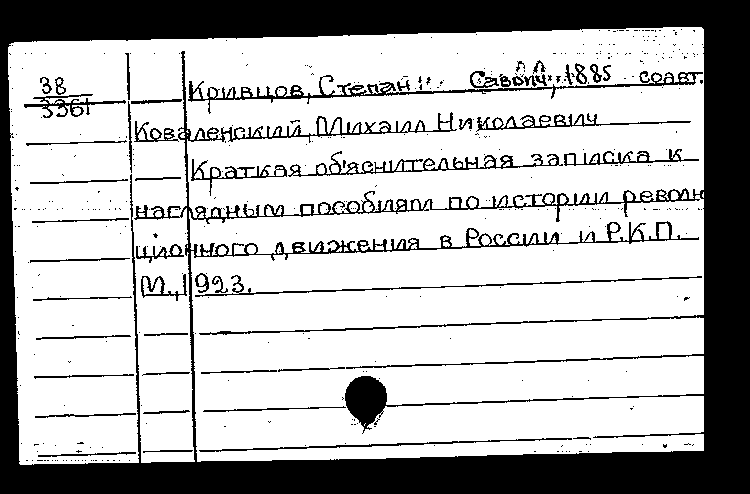 38
3361
Кривцов, Степан Савович, 1885 соавт.
Коваленский, Михаил Николаевич
Краткая объяснительная записка к
наглядным пособиям по истории револю
ционного движения в России и Р.К.П.
М., 1923.